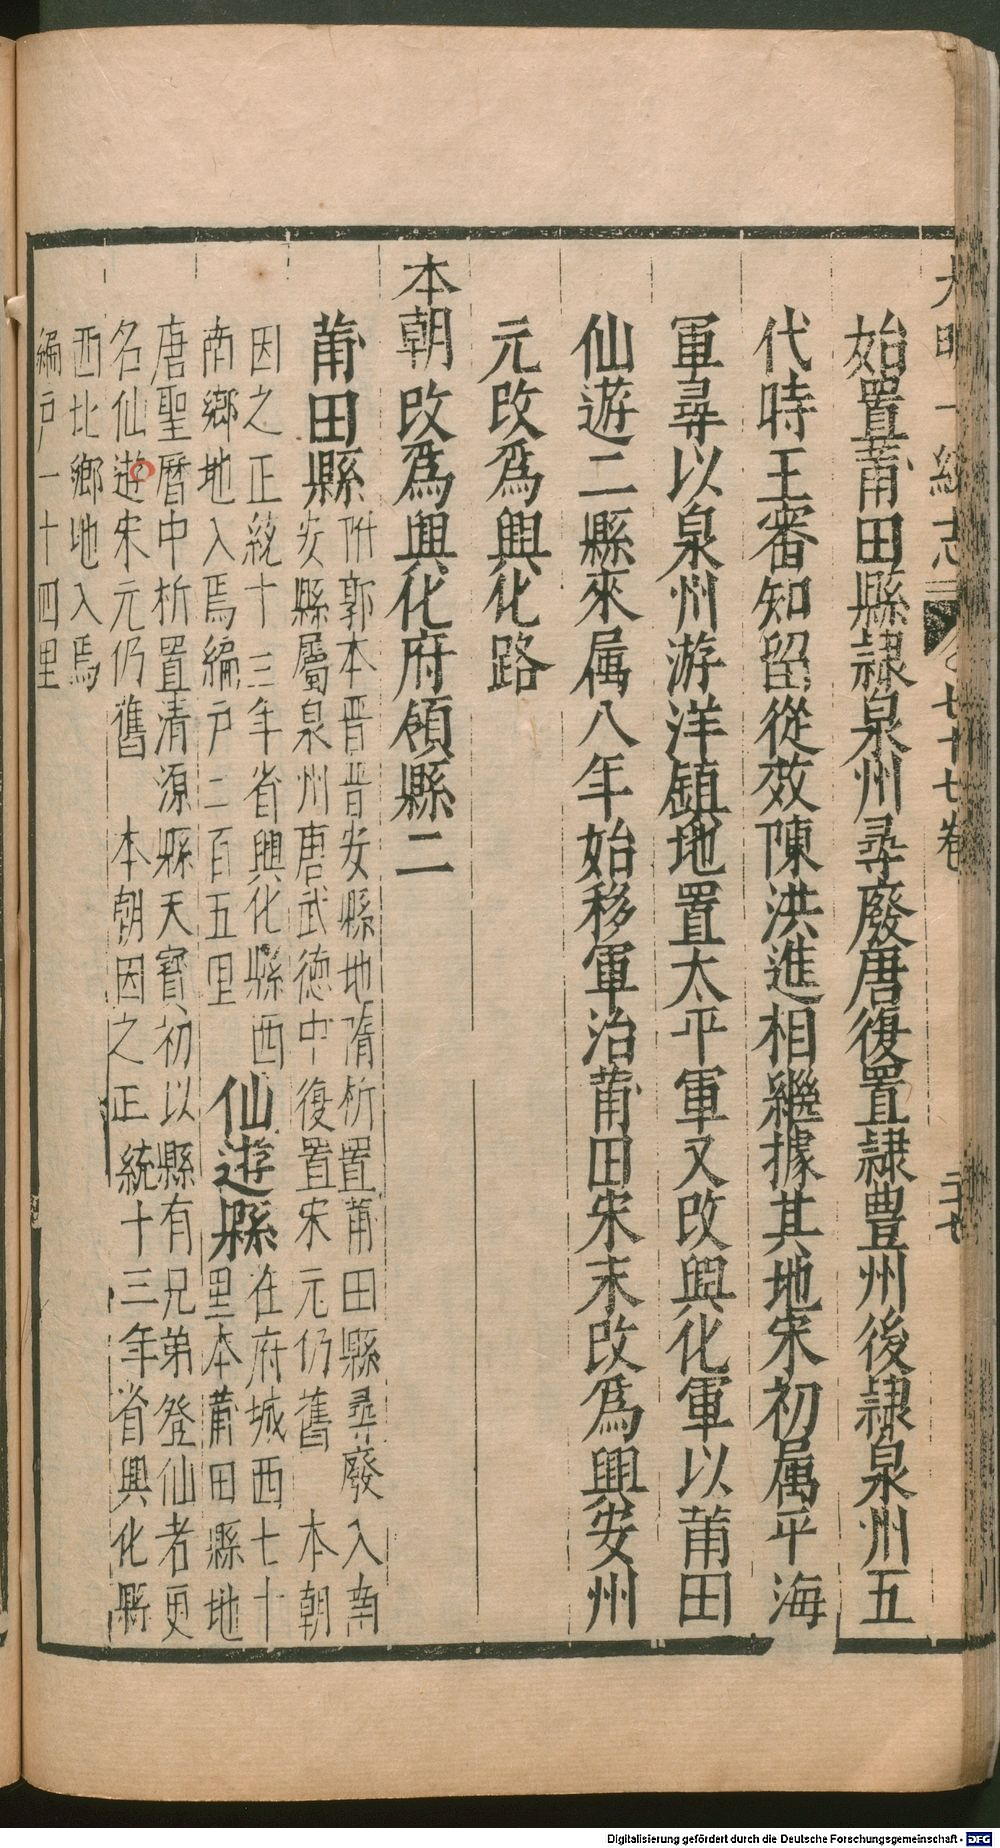 大明一統志 七十七卷 三七
始置莆田縣隷泉州尋廢唐復置隷豊州後隷泉州五
代時王審知留從效陳洪進相繼據其地宋初属平海
軍尋以泉州游洋鎮地置太平軍又改興化軍以莆田
仙遊二縣來属八年始移軍治莆田宋末改爲興安州
元改爲興化路
本朝改爲興化府領縣二
莆田縣
附郭本晋晋安縣地隋析置莆田縣尋廢入南
安縣屬泉州唐武德中復置宋元仍舊 本朝
因之正統十三年省興化縣西
南鄉地入焉編戶二百五里
仙遊縣
在府城西七十
里本莆田縣地
唐聖曆中析置清源縣天寳初以縣有兄弟登仙者更
名仙遊宋元仍舊 本朝因之正統十三年省興化縣
西北鄉地入焉
編戶一十四里
Digitalisierung gefördert durch die Deutsche Forschungsgemeinschaft - DFG